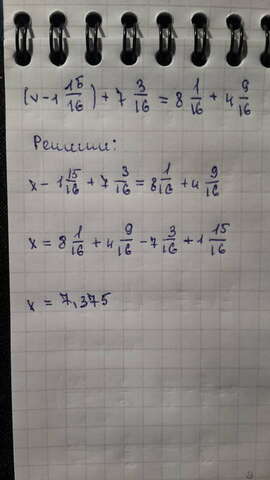 (x-1 15/16) + 7 3/16 = 8 1/16 + 4 9/16
Решение:
x - 1 15/16 + 7 3/16 = 8 1/16 + 4 9/16
x = 8 1/16 + 4 9/16 - 7 3/16 + 1 15/16
x = 7,375